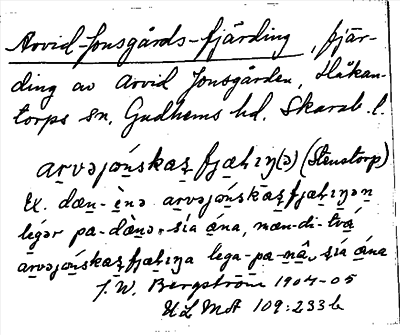 Arvid-Jonsgårds-fjärding, fjär-
ding av Arvid Jonsgården, Håkan-
torps sn, Gudhems hd, Skarab. l.
arvəjónskaʂ fjæɫıŋ(ə) (Stenstorp)
Ex. dæn-ènə arvəjónskaʂ fjæɫıŋən
legər pa-dènə sía ɷ́na, mæn-di-två
arvəjónskaʂ fjæɫıŋa lega-pa-nâ sía ɷ́na
J. W. Bergström 1904-05
ULMA 109:233 b